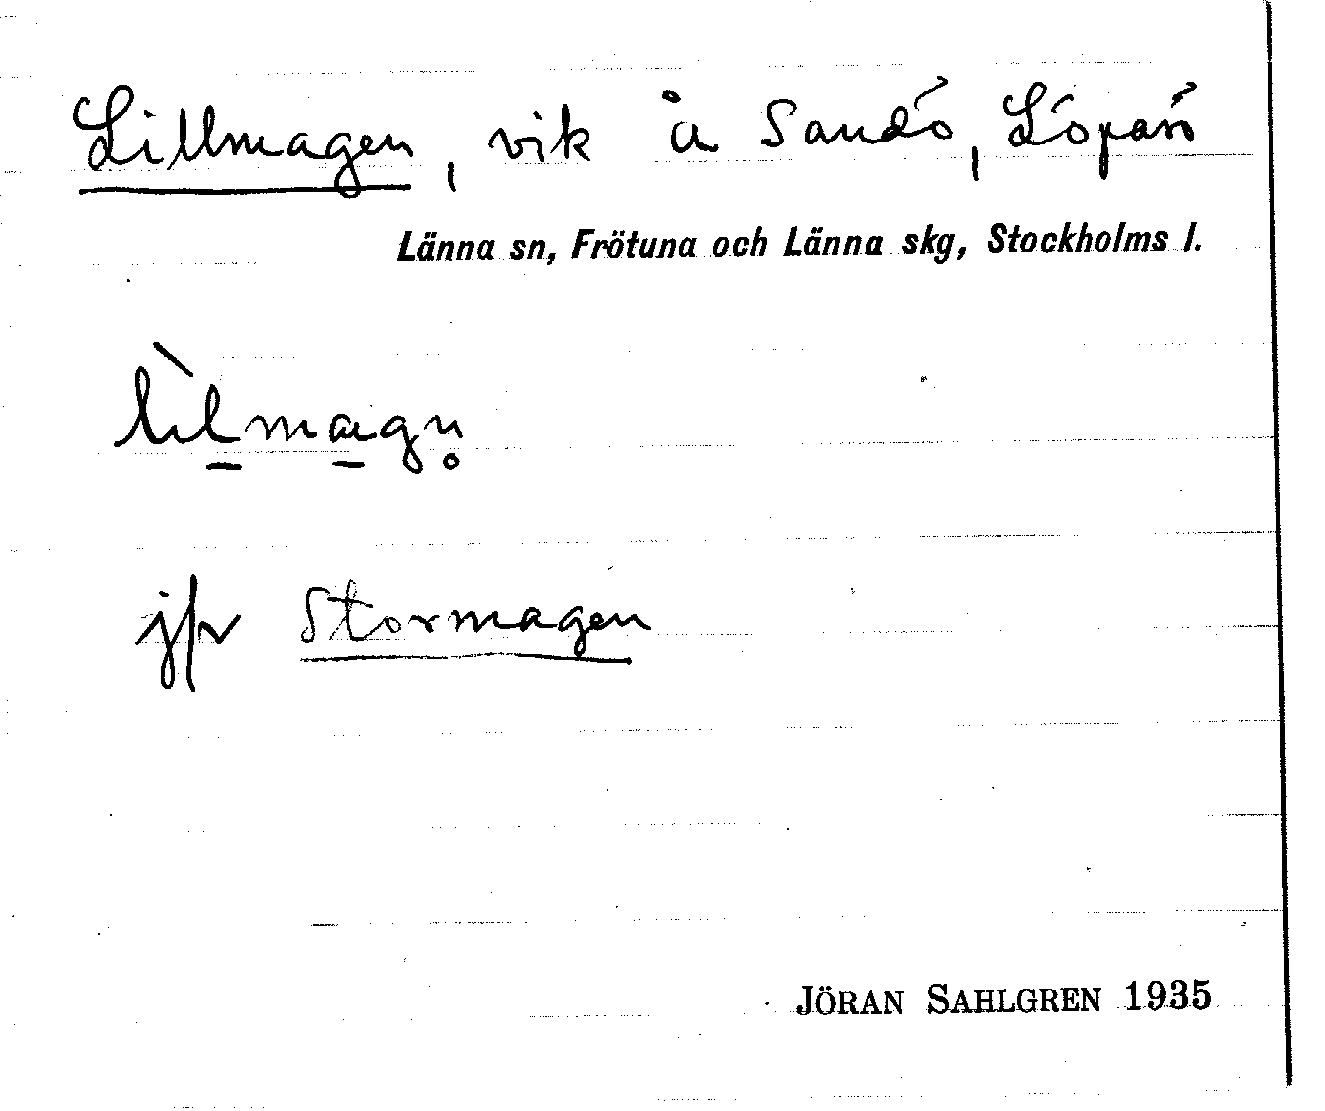 Lillmagen, vik å Sandö, Löparö
Länna sn, Frötuna och Länna skg, Stockholms l.
lìl̠ma̠gn̥
jfr Stormagen
JÖRAN SAHLGREN 1935